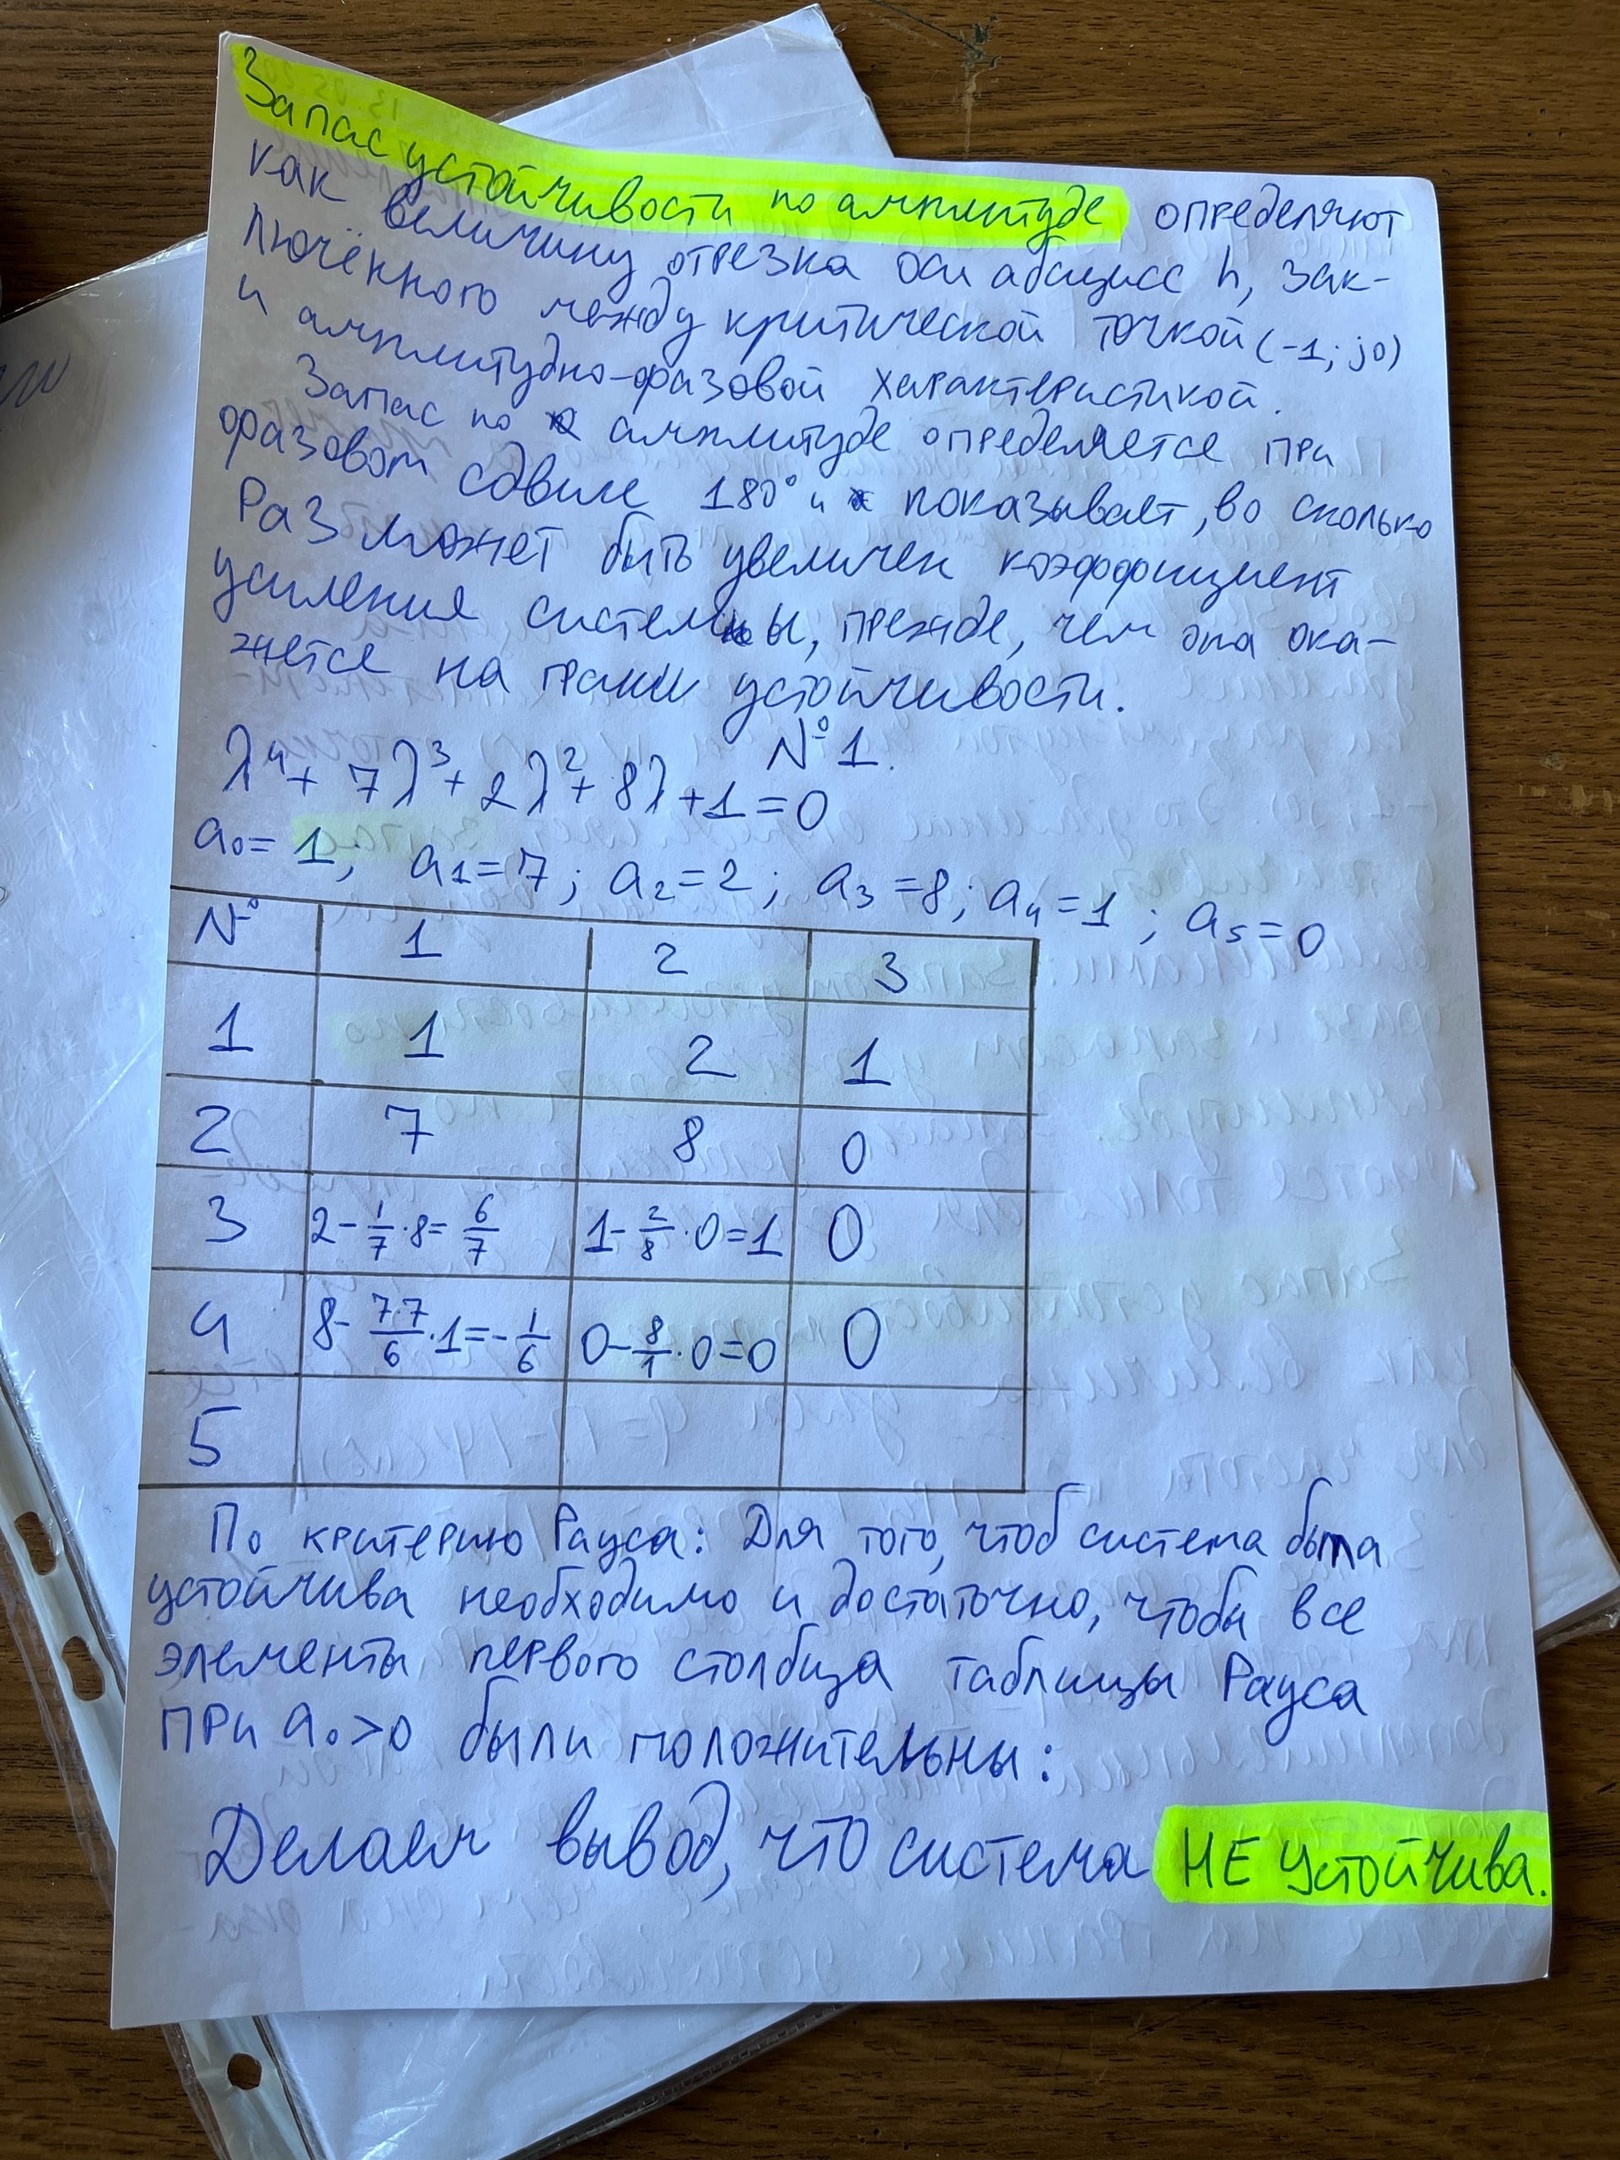 Запас устойчивости по амплитуде определяют
как величину отрезка оси абсцисс h, зак-
лючённого между критической точкой (-1; j0)
и амплитудно-фазовой характеристикой.
Запас по амплитуде определяется при
фазовом сдвиге 180° и показывает, во сколько
раз может быть увеличен коэффициент
усиления системы, прежде, чем она ока-
жется на грани устойчивости.
№1.
λ⁴ + 7λ³ + 2λ² + 8λ + 1 = 0
a₀ = 1; a₁ = 7; a₂ = 2; a₃ = 8; a₄ = 1; a₅ = 0
№ 1 2 3
1 1 2 1
2 7 8 0
3 2 - 1/7 · 8 = 6/7 1 - 2/8 · 0 = 1 0
4 8 - 7·7/6 · 1 = - 1/6 0 - 8/1 · 0 = 0 0
5
По критерию Рауса: Для того, чтоб система была
устойчива необходимо и достаточно, чтобы все
элементы первого столбца таблицы Рауса
при a₀ > 0 были положительны:
Делаем вывод, что система НЕ устойчива.